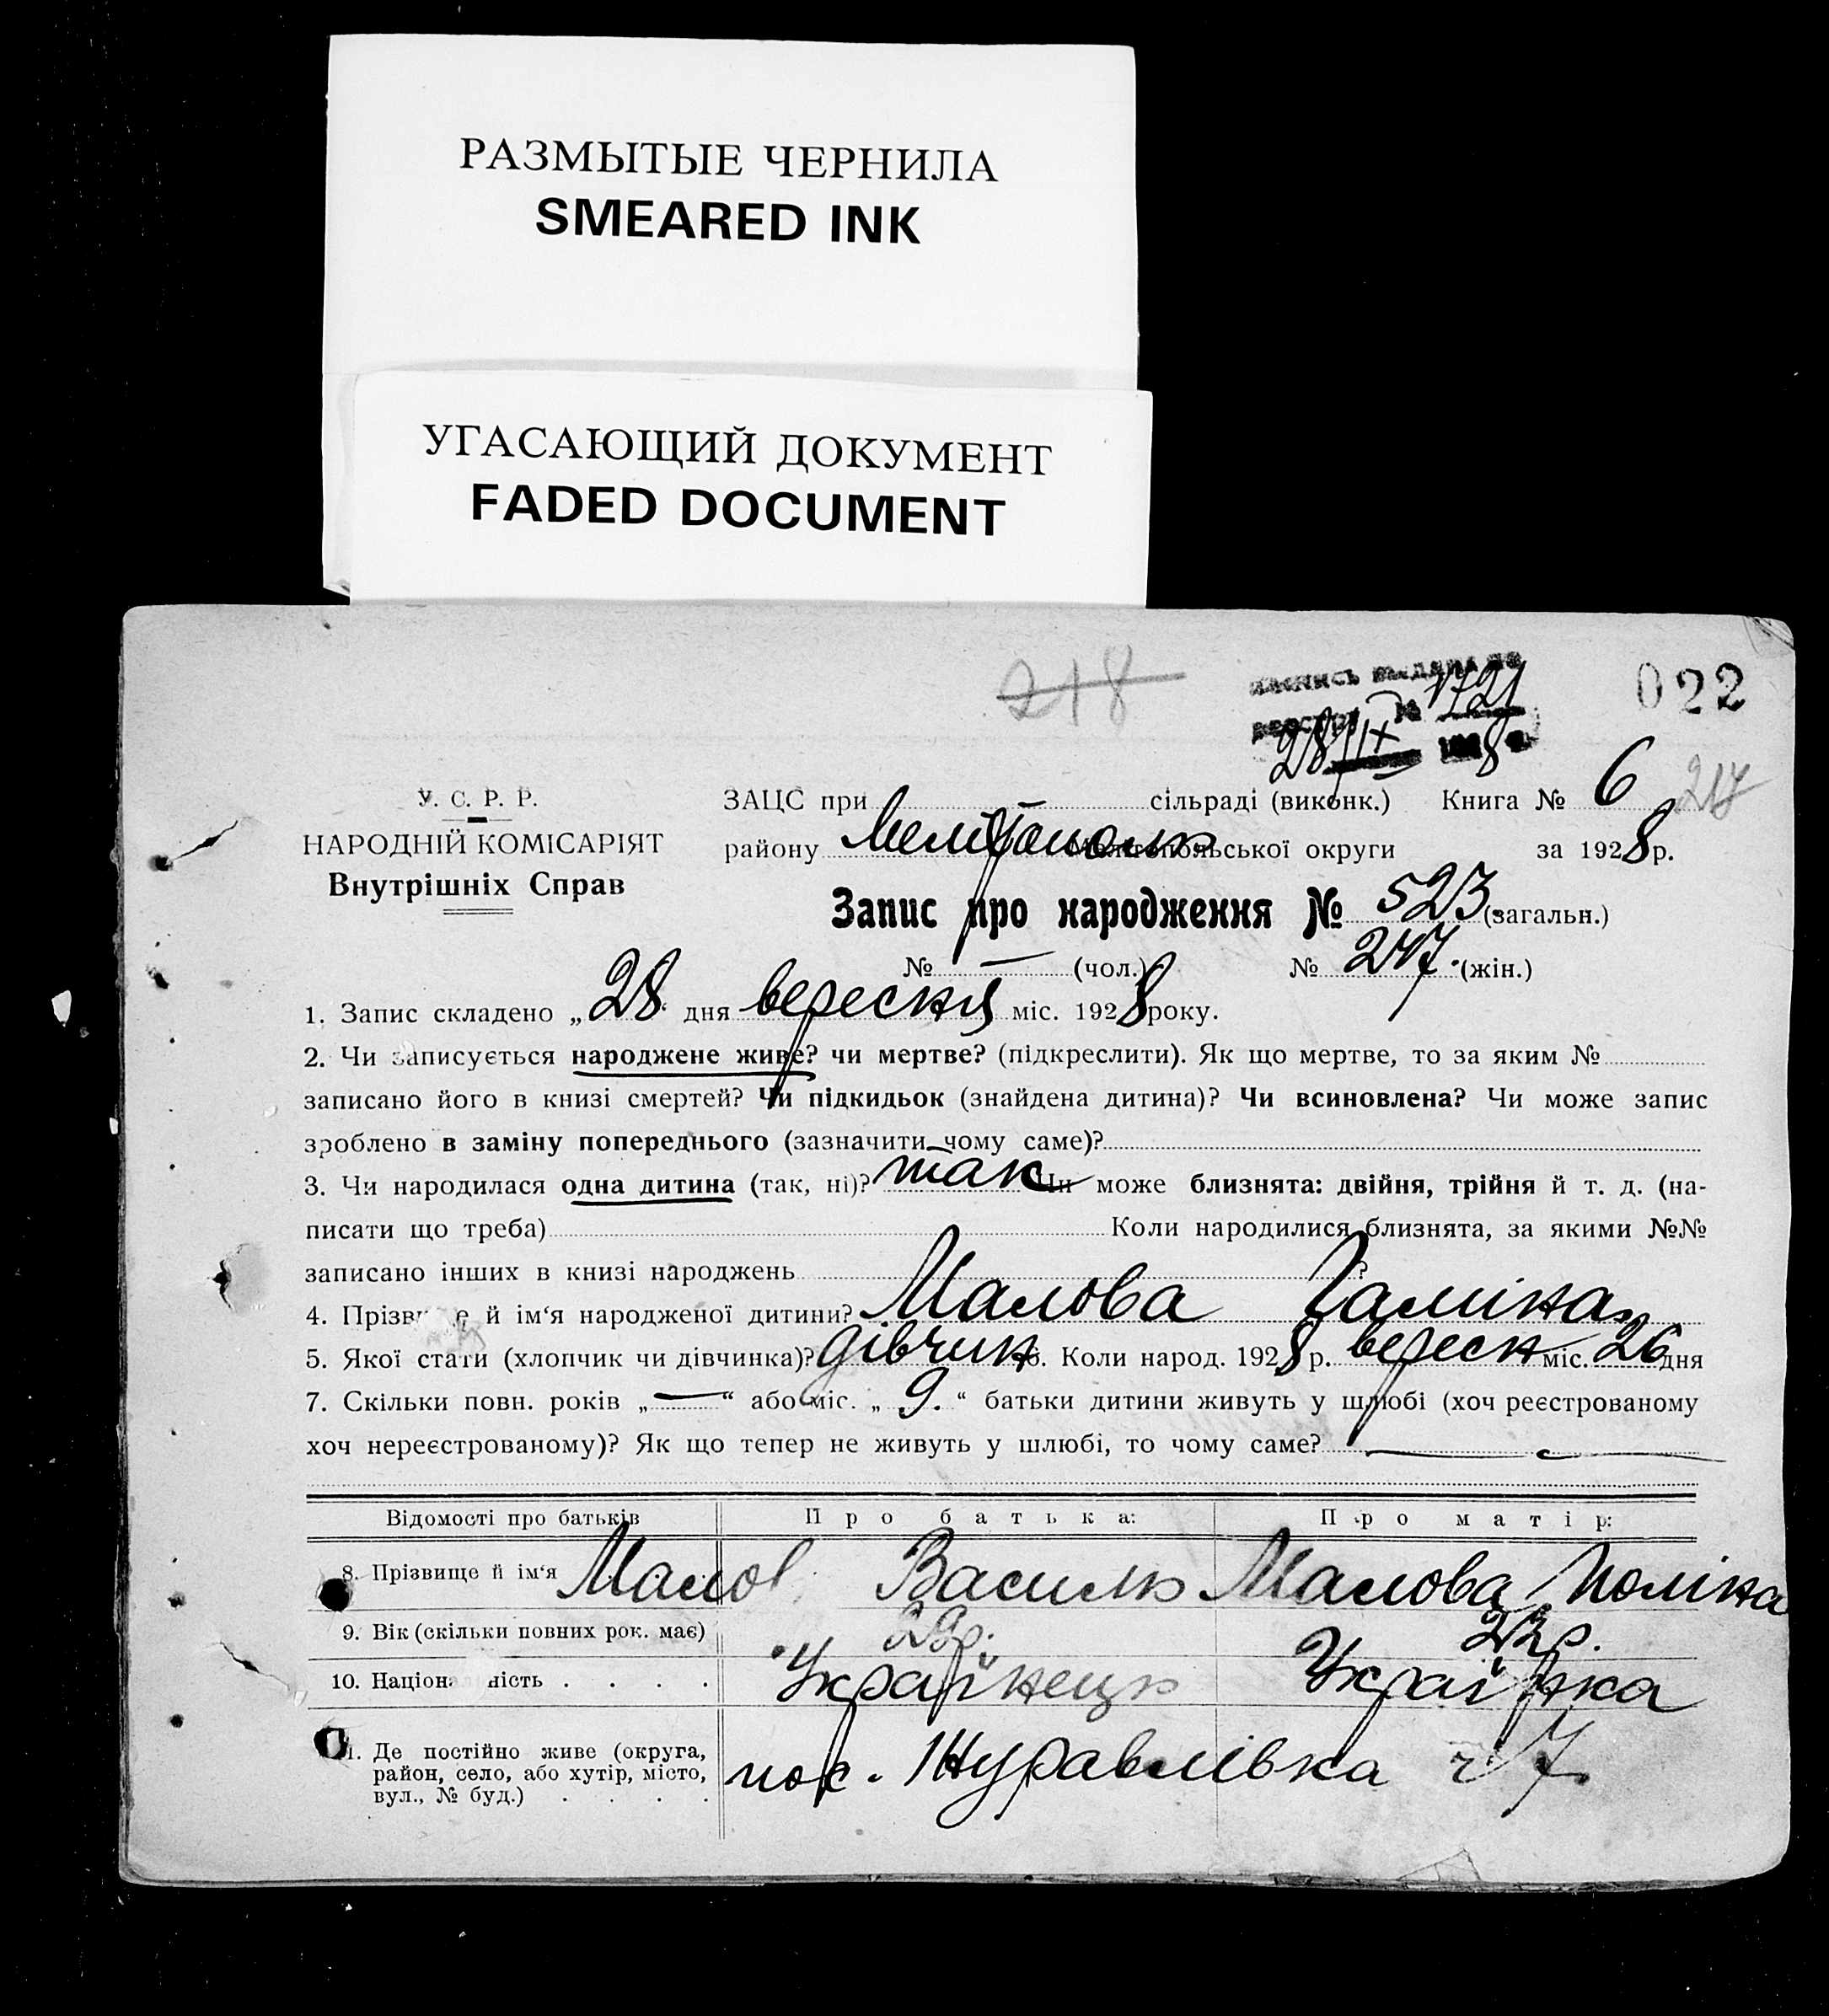 РАЗМЫТЫЕ ЧЕРНИЛА
SMEARED INK
УГАСАЮЩИЙ ДОКУМЕНТ
FADED DOCUMENT
218
022
№ 1721
28/IX 1928
У. С. Р. Р.
НАРОДНІЙ КОМІСАРІЯТ
Внутрішніх Справ
ЗАЦС при сільраді (виконк.) Книга № 6 217
району Мелітополь Мелітопольської округи за 1928 р.
Запис про народження № 523 (загальн.)
№ — (чол.) № 247. (жін.)
1. Запис складено „28 дня вересня міс. 1928 року.
2. Чи записується народжене живе? чи мертве? (підкреслити). Як що мертве, то за яким №
записано його в книзі смертей? Чи підкидьок (знайдена дитина)? Чи всиновлена? Чи може запис
зроблено в заміну попереднього (зазначити чому саме)?
3. Чи народилася одна дитина (так, ні)? так Чи може близнята: двійня, трійня й т. д. (на-
писати що треба) Коли народилися близнята, за якими №№
записано інших в книзі народжень ?
4. Прізвище й ім‘я народженої дитини? Малова Галіна
5. Якої стати (хлопчик чи дівчинка)? дівчин 6. Коли народ. 1928 р. вересн міс. 26 дня
7. Скільки повн. років „—“ або міс. „9.“ батьки дитини живуть у шлюбі (хоч реєстрованому
хоч нереєстрованому)? Як що тепер не живуть у шлюбі, то чому саме? —
Відомості про батьків Про батька: Про матір:
8. Прізвище й ім‘я Малов Василь Малова Поліна
9. Вік (скільки повних рок. має) 29р. 23р.
10. Національність . . . . Українець Українка
11. Де постійно живе (округа,
район, село, або хутір, місто,
вул., № буд.) . . . .
пос. Журавлівка ч 7